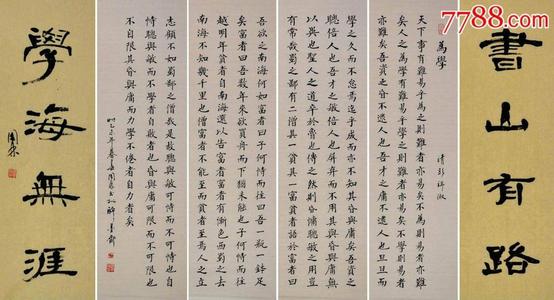 7788.com
書山有路
為學 清彭端淑
天下事有難易乎為之則難者亦易矣不為則易者亦難
矣人之為學有難易乎學之則難者亦易矣不學則易者
亦難矣吾資之昏不逮人也吾才之庸不逮人也旦旦而
學之久而不怠焉迄乎成而亦不知其昏與庸也吾資之
聰倍人也吾才之敏倍人也屏棄而不用其與昏與庸無
以異也聖人之道卒於魯也傳之然則昏庸聰敏之用豈
有常哉蜀之鄙有二僧其一貧其一富貧者語於富者曰
吾欲之南海何如富者曰子何恃而往曰吾一瓶一鉢足
矣富者曰吾數年來欲買舟而下猶未能也子何恃而往
越明年貧者自南海還以告富者富者有慚色西蜀之去
南海不知幾千里也僧富者不能至而貧者至焉人之立
志顧不如蜀鄙之僧哉是故聰與敏可恃而不可恃也自
恃聰與敏而不學者自敗者也昏與庸可限而不可限也
不自限其昏與庸而力學不倦者自力者矣
學海無涯